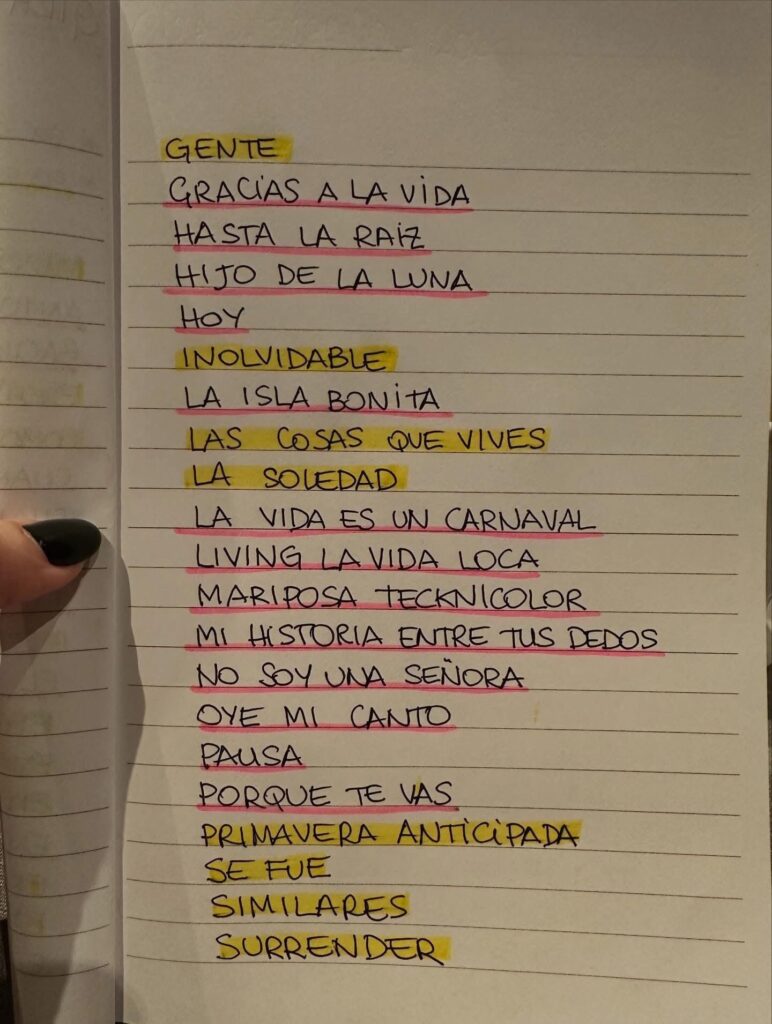 GENTE
GRACIAS A LA VIDA
HASTA LA RAIZ
HIJO DE LA LUNA
HOY
INOLVIDABLE
LA ISLA BONITA
LAS COSAS QUE VIVES
LA SOLEDAD
LA VIDA ES UN CARNAVAL
LIVING LA VIDA LOCA
MARIPOSA TECKNICOLOR
MI HISTORIA ENTRE TUS DEDOS
NO SOY UNA SEÑORA
OYE MI CANTO
PAUSA
PORQUE TE VAS
PRIMAVERA ANTICIPADA
SE FUE
SIMILARES
SURRENDER